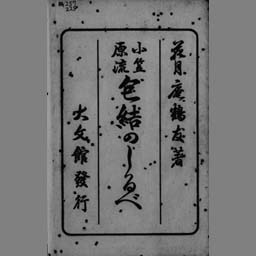 花月庵鶴友著
小笠原流
包結のしるべ
大文館發行